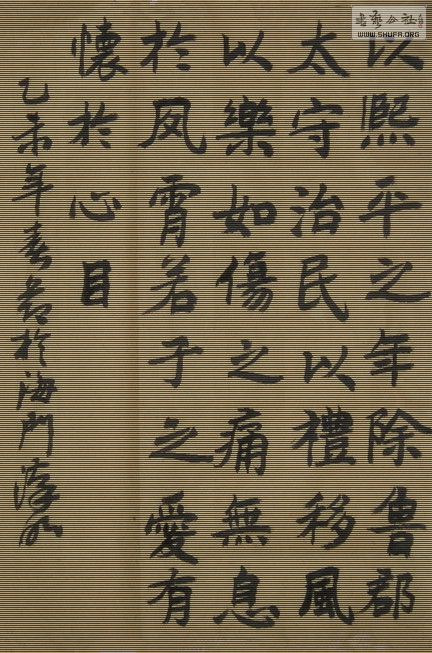 以熙平之年除魯郡
太守治民以禮移風
以樂如傷之痛無息
於夙霄若子之愛有
懷於心目
乙未年春書於海門
WWW.SHUFA.ORG